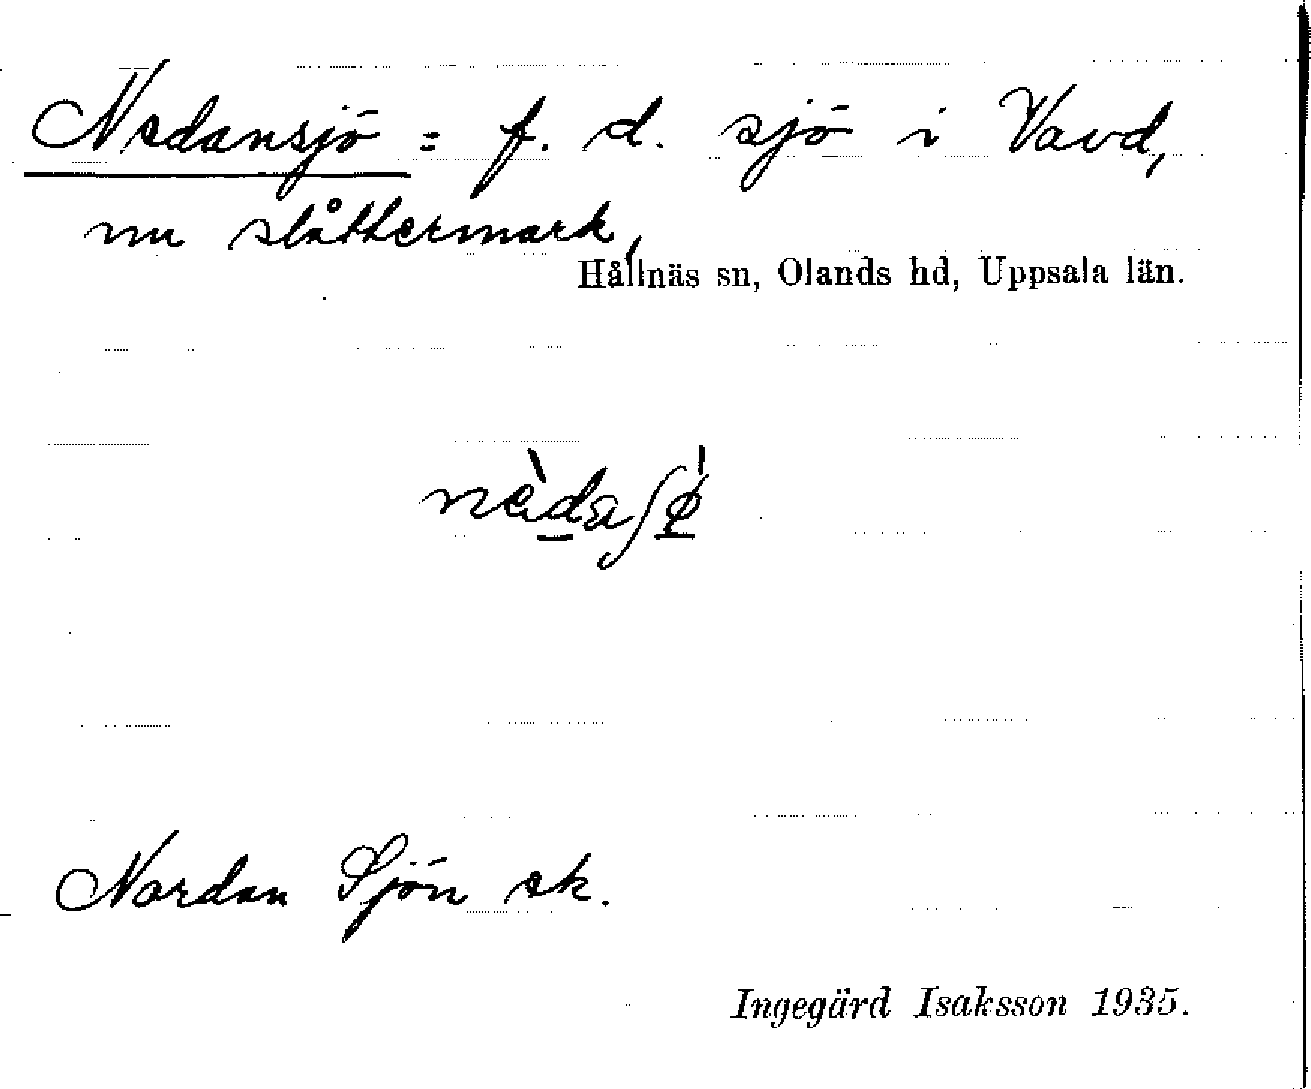 Nedansjö = f. d. sjö i Vavd,
nu slåttermark,
Hållnäs sn, Olands hd, Uppsala län.
nèdaʃø̀
Nordan Sjön ek.
Ingegärd Isaksson 1935.